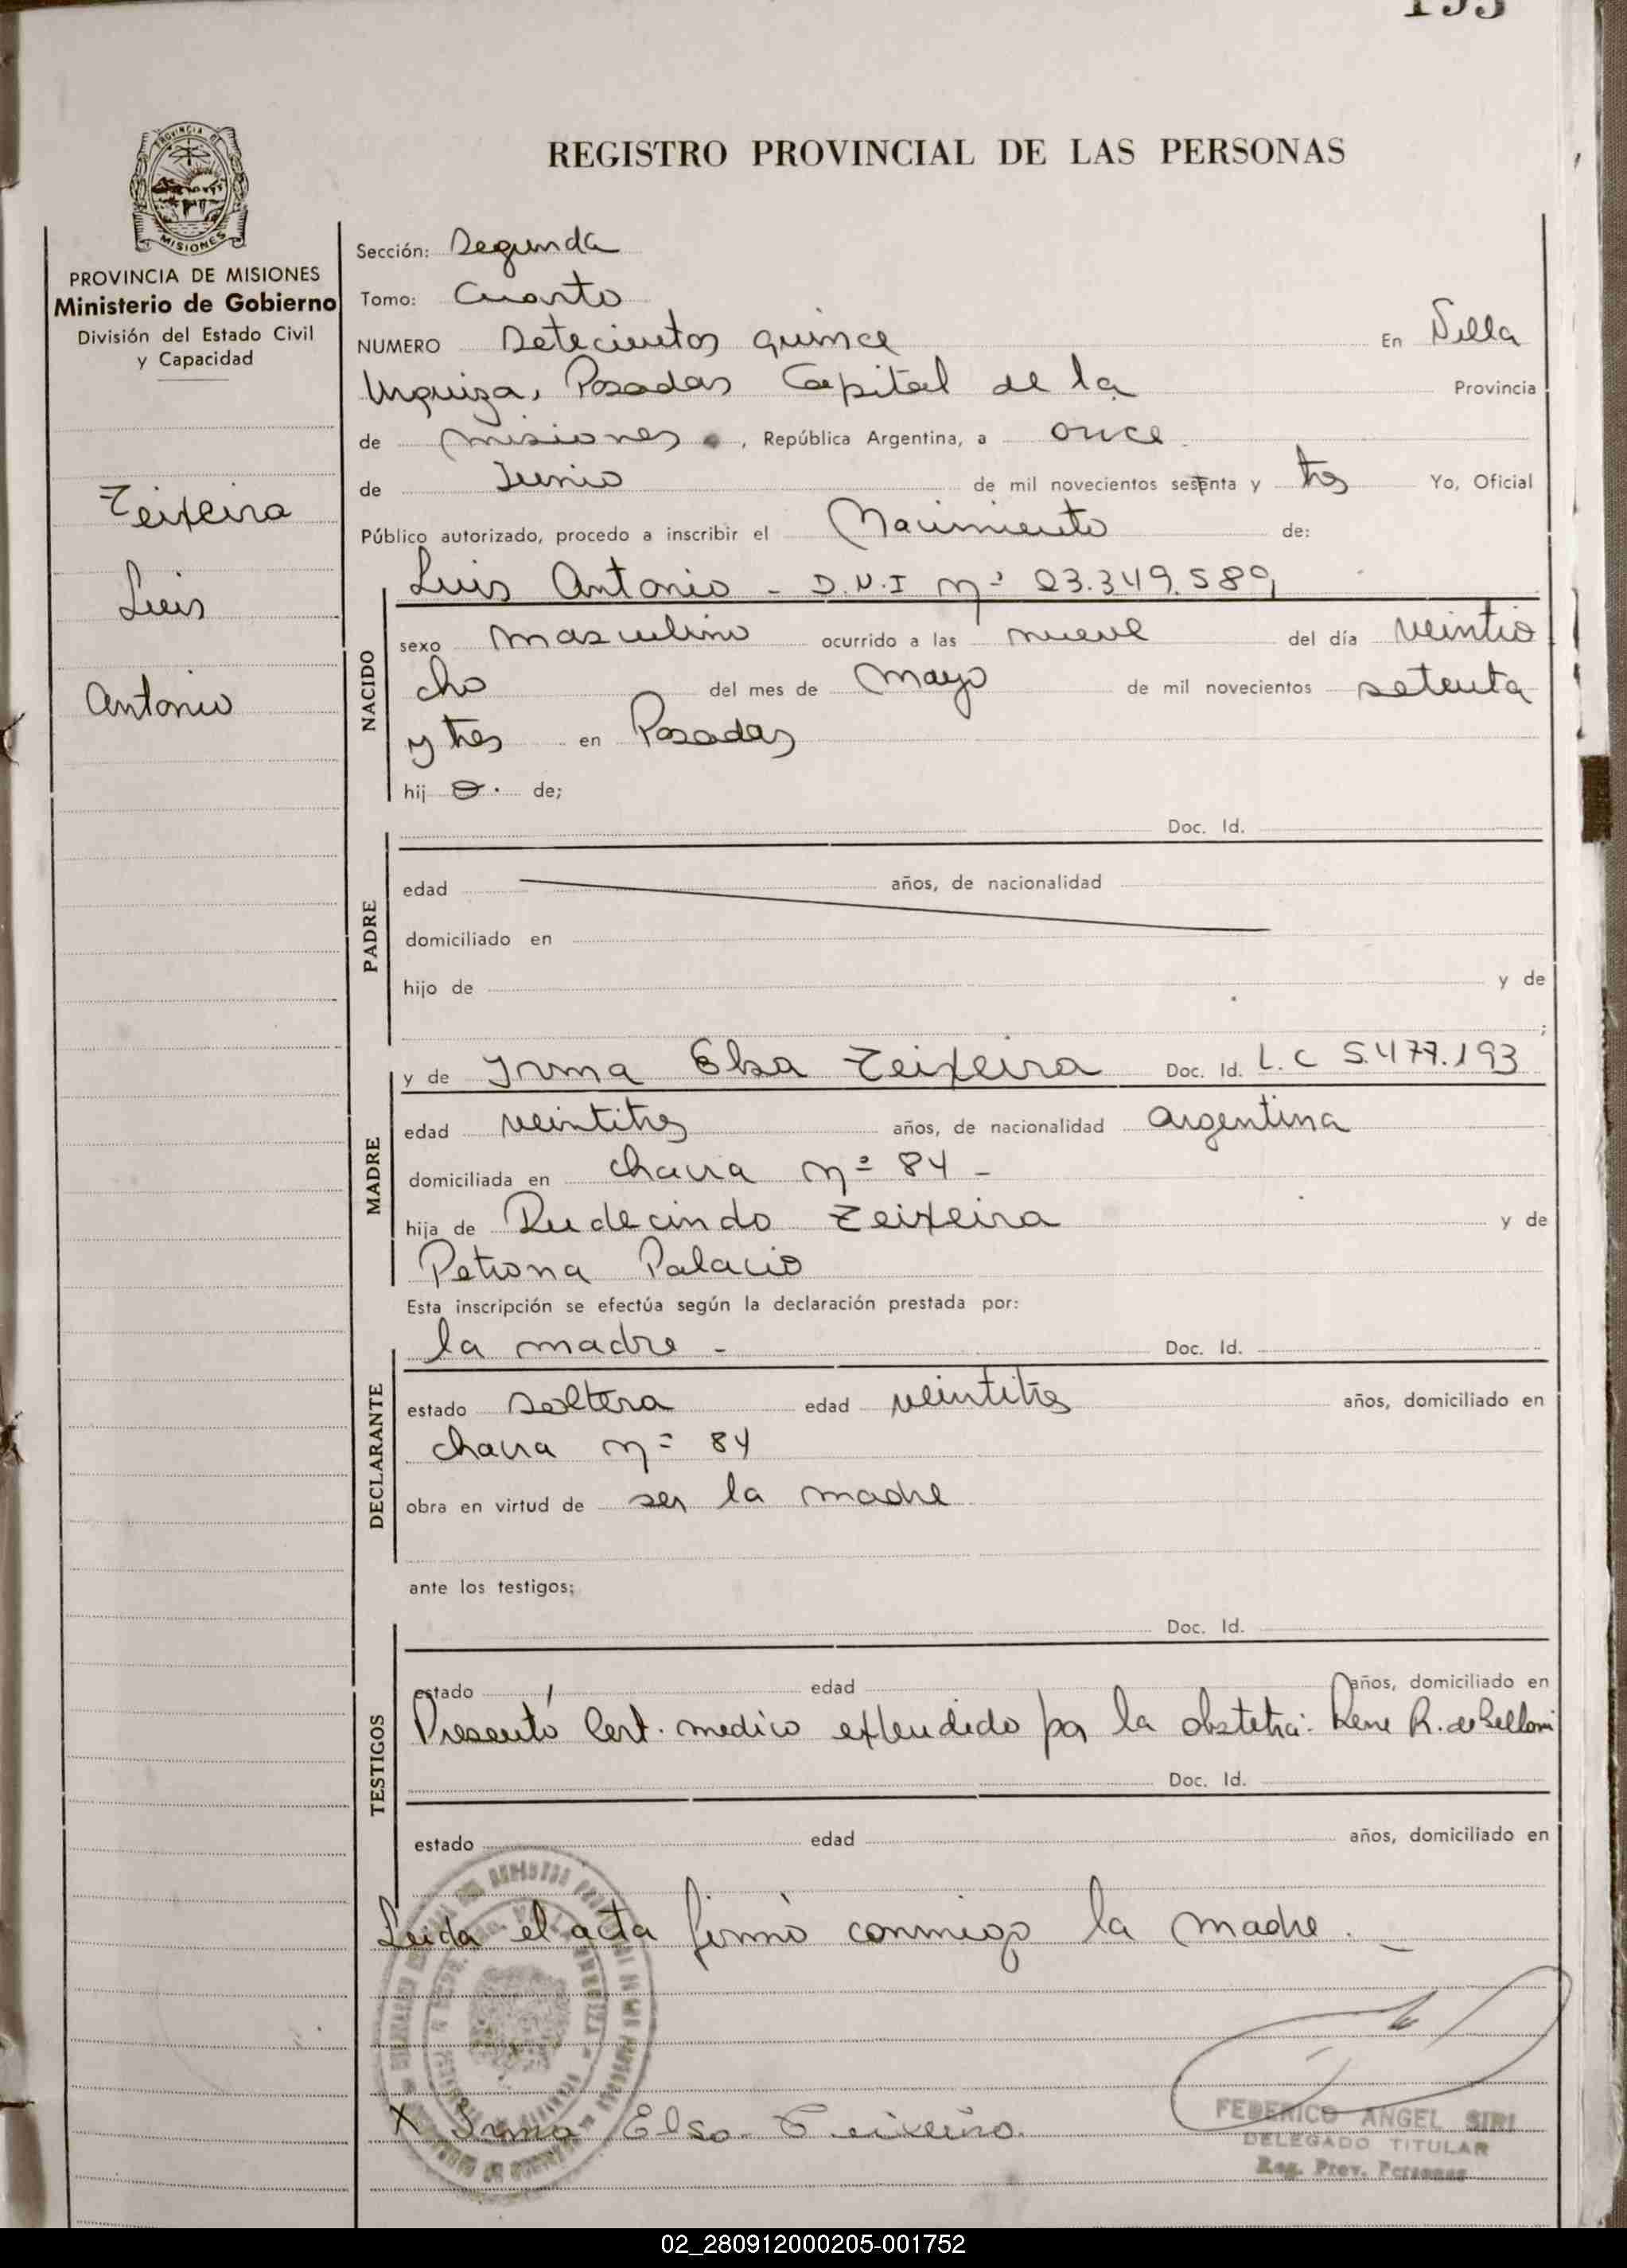 REGISTRO PROVINCIAL DE LAS PERSONAS
MISIONES
PROVINCIA DE MISIONES
Ministerio de Gobierno
División del Estado Civil
y Capacidad
Teixeira
Luis
Antonio
Sección: Segunda
Tomo: Cuarto
NUMERO Setecientos quince En Villa
Urquiza, Posadas Capital de la Provincia
de Misiones, República Argentina, a once
de Junio de mil novecientos setenta y tres Yo, Oficial
Público autorizado, procedo a inscribir el Nacimiento de:
NACIDO
Luis Antonio - D.N.I nº 23.349.589
sexo masculino ocurrido a las nueve del día veintio
cho del mes de Mayo de mil novecientos setenta
y tres en Posadas
hij o. de;
PADRE
Doc. Id.
edad años, de nacionalidad
domiciliado en
hijo de y de
;
MADRE
y de Irma Elsa Teixeira Doc. Id. L.C 5.477.193
edad veintitres años, de nacionalidad argentina
domiciliada en chacra nº 84 -
hija de Rudecindo Teixeira y de
Petrona Palacio
Esta inscripción se efectúa según la declaración prestada por:
DECLARANTE
la madre - Doc. Id.
estado soltera edad veintitres años, domiciliado en
chacra nº 84
obra en virtud de ser la madre
ante los testigos:
TESTIGOS
Doc. Id.
estado edad años, domiciliado en
Presentó Cert. medico extendido por la obstetra: Rene R. de
Doc. Id.
estado edad años, domiciliado en
Leida el acta firmó conmigo la madre. -
X Irma Elsa Teixeira.
FEDERICO ANGEL SIRI
DELEGADO TITULAR
Reg. Prov. Personas
02_280912000205-001752